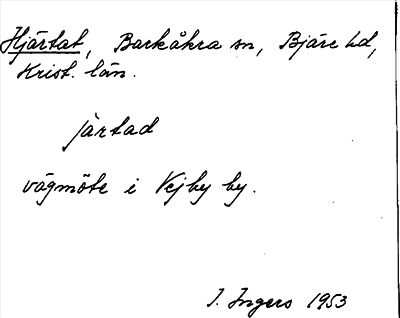 Hjärtat, Barkåkra sn, Bjäre hd,
Krist. län.
järtad
vägmöte i Vejby by.
I. Ingers 1953